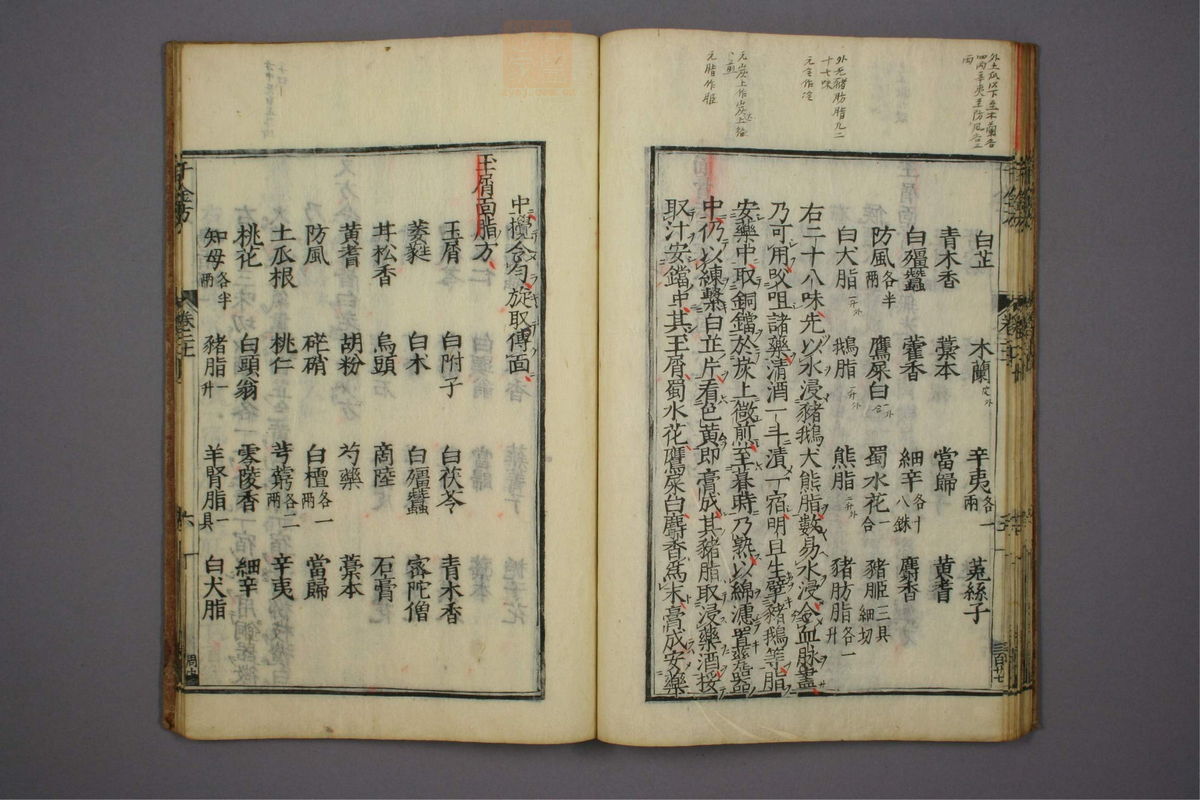 白芷 木蘭 辛夷各一兩 菟絲子
青木香 藁本 當歸 黃耆
白殭蠶 藿香 細辛各十八銖 麝香
防風各半兩 鷹屎白一合 蜀水花一合 豬胰三具細切
白犬脂 鵝脂 熊脂 豬肪脂各一升
右二十八味先以水浸豬鵝犬熊脂數易水浸令血脉盡
乃可用㕮咀諸藥清酒一斗漬一宿明旦生擘豬鵝等脂
安藥中取銅鐺於炭上微煎至暮時乃熟以綿濾置瓷器
中仍以練繫白芷片看色黃即膏成其豬脂取浸藥酒挼
取汁安鐺中其玉屑蜀水花鷹屎白麝香為末膏成安藥
中攪令勻旋取傅面
玉屑面脂方
玉屑 白附子 白茯苓 青木香
萎蕤 白朮 白殭蠶 蜜陀僧
甘松香 烏頭 商陸 石膏
黃耆 胡粉 芍藥 藁本
防風 硭硝 白檀各一兩 當歸
土瓜根 桃仁 芎藭各二兩 辛夷
桃花 白頭翁 零陵香 細辛
知母各半兩 豬脂一升 羊腎脂一具 白犬脂
千金方
六